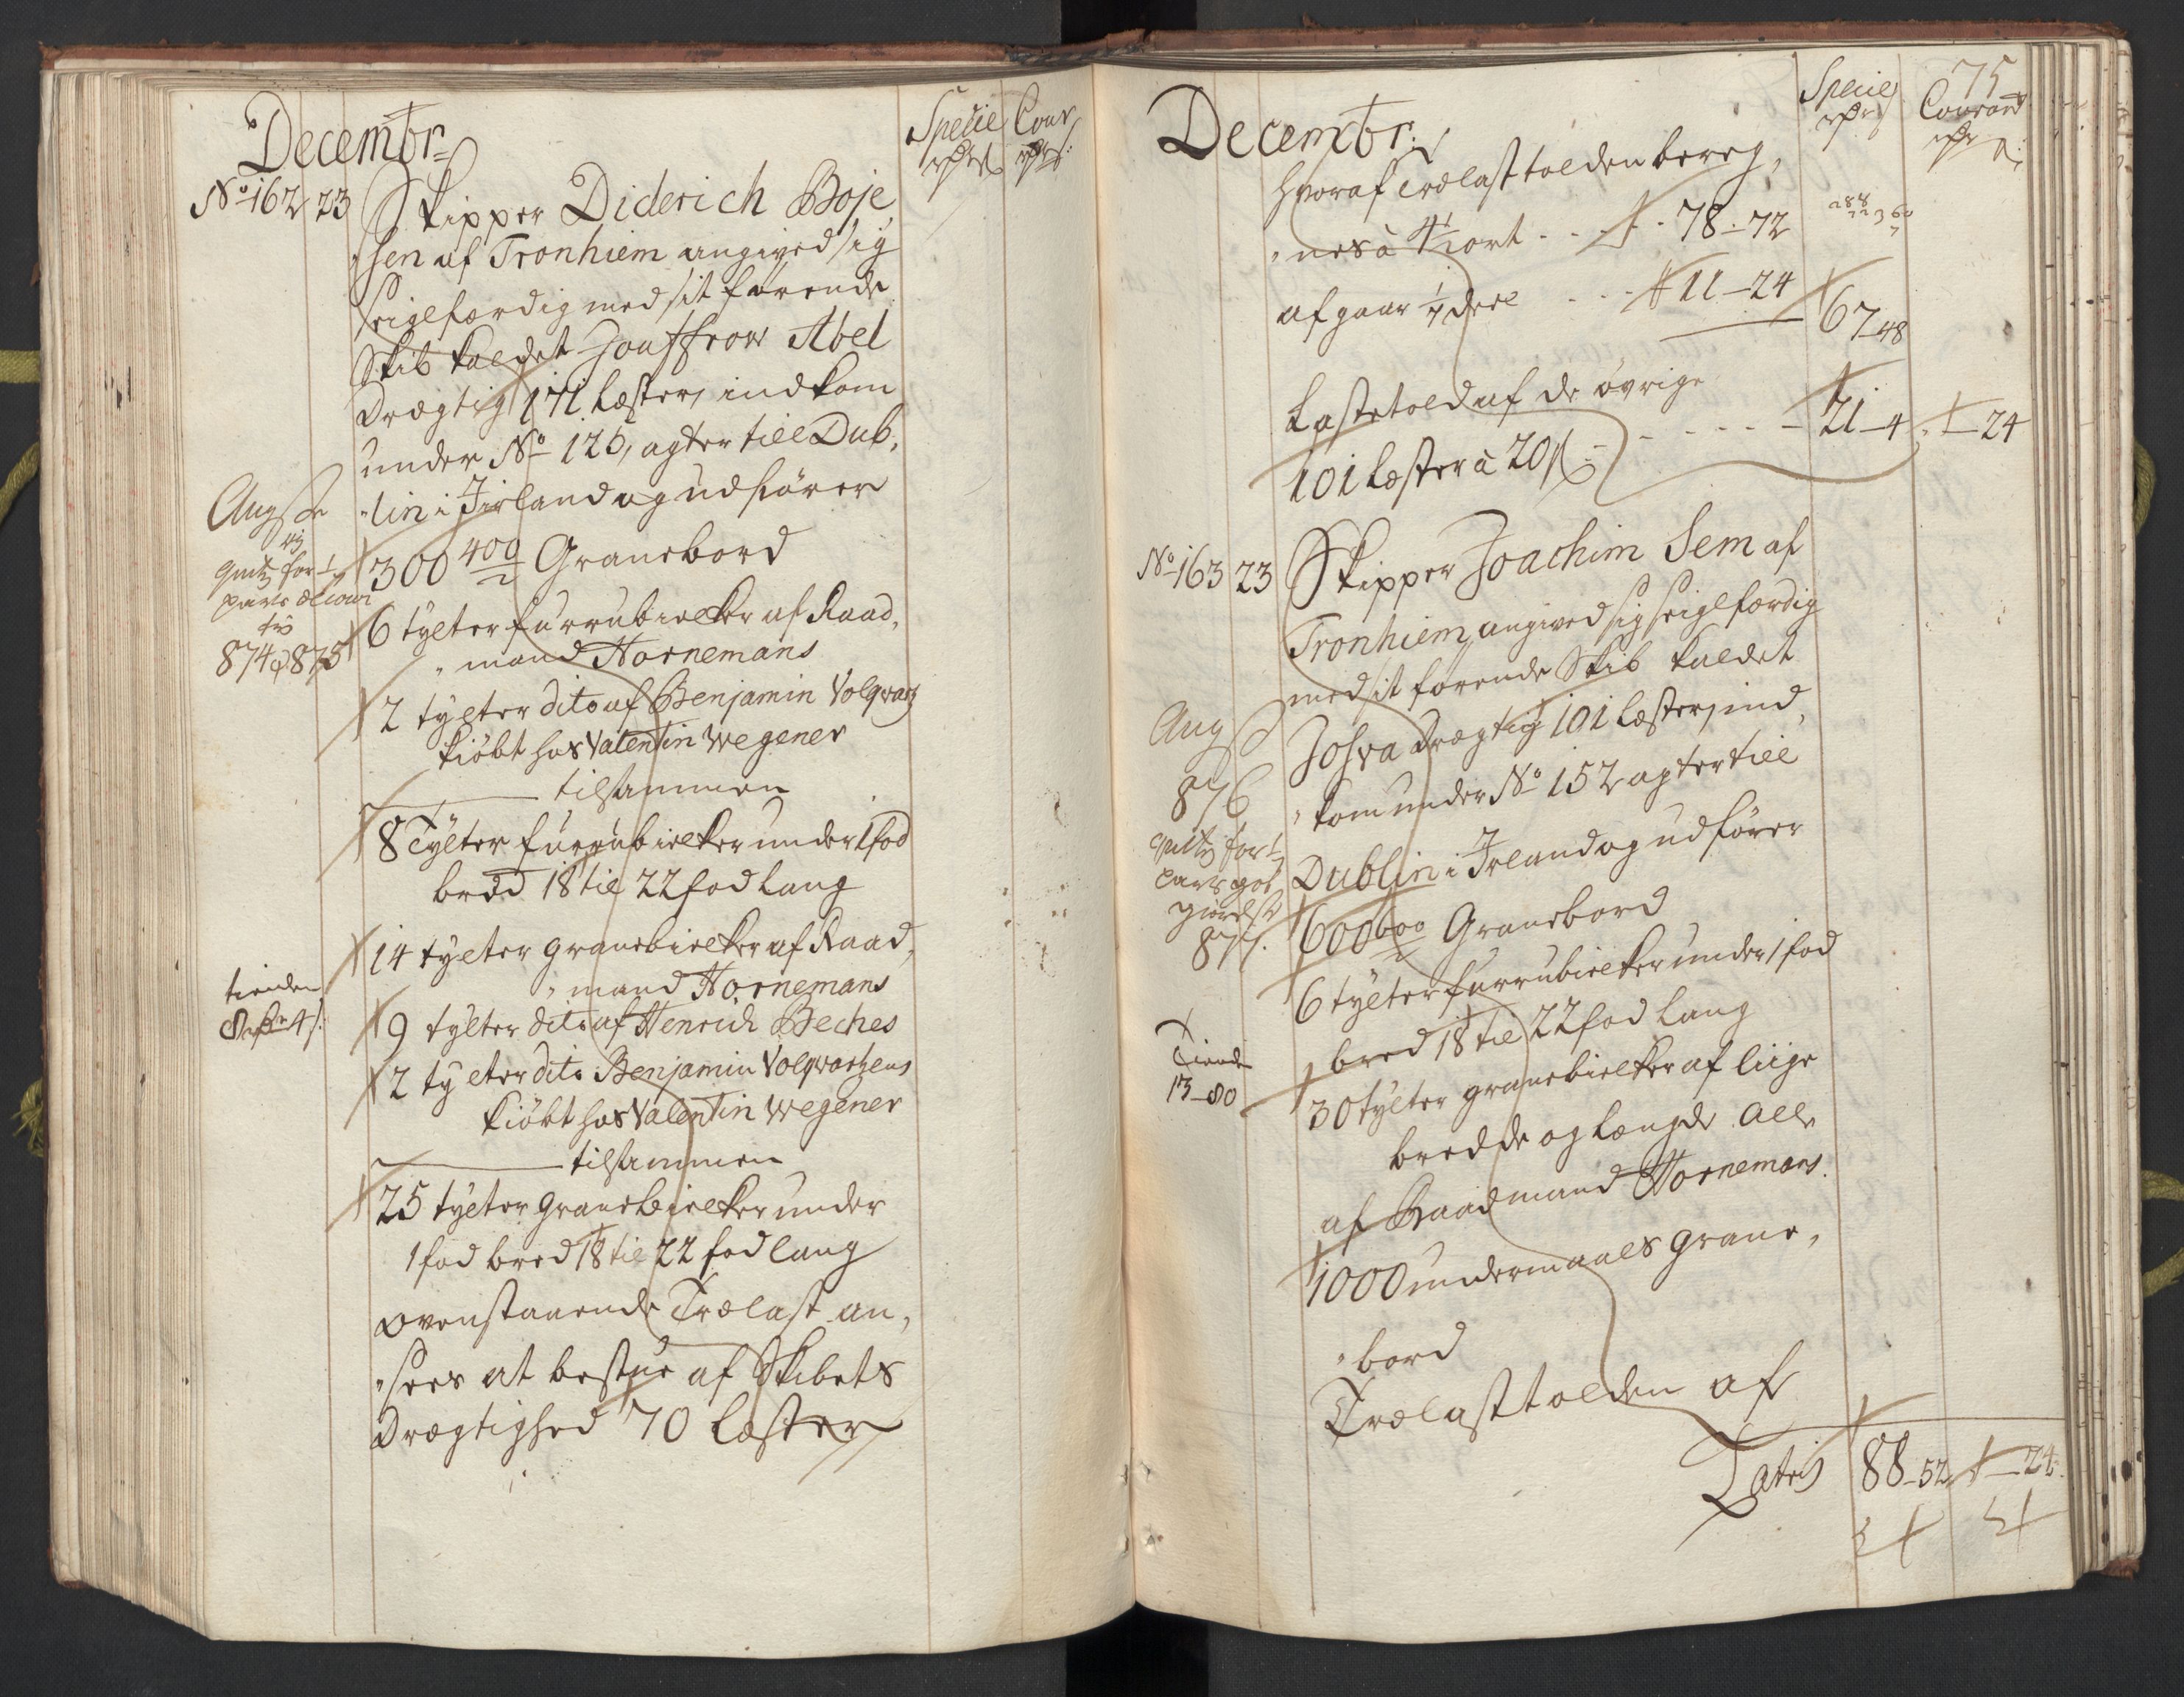 Decembr:
Specie Cour
No 162 23 Skipper Diderich Boje,
sen af Tronhiem angived sig
seiglfærdig med sit førende
Skib kaldet Jouffrow Abel
drægtig 171 Læster, indkom
under No 125, agter till Dub,
lin i Jirland og udfører
Ang
300 400 Granebord
6 tylter furrubielker af Raad,
mand Hornemans
874 & 875
2 tylter dito af Benjamin Volqvartz
kiøbt hos Valentin Wegener
tilsammen
8 Tylter furrubielker under 1 fod
bred 18 til 22 fod lang
14 tylter granebielker af Raad,
mand Hornemans
tienden
8 rdr 4 s.
9 tylter dito af Henrich Beches
2 tylter dito Benjamin Volqvartzens
kiøbt hos Valentin Wegener
tilsammen
25 tylter granebielker under
1 fod bred 18 til 22 fod lang
ovenstaaende Trælast an,
sees at bestaae af Skibets
Drægtighed 70 Læster
75
Decembr:
Specie Courant
hvoraf trælasttolden bereg,
nes à 4½ ort - - - 78 - 72
af gaar 1/7 deel - - - 11 - 24
67 - 48
Lastetold af de øvrige
101 Læster à 20 s - - - - - 21 - 4 - 24
No 163 23 Skipper Joachim Sem af
Tronhiem, angived sig seiglfærdig
med sit førende Skib kaldet
Josva drægtig 101 Læster, ind,
kom under No 152 agter till
Dublin i Irland og udfører
Ang
876
877.
600 600 Granebord
6 tylter furrubielker under 1 fod
bred 18 til 22 fod lang
Tiende
13 - 80
30 tylter granebielker af liige
bredde og længde Alle
af Raadmand Hornemans.
1000 undermaals Grane,
bord
Trælasttolden af
Latris 88 - 52 - 24.